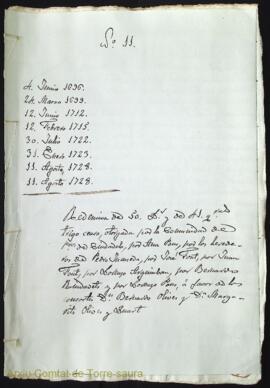 Nº 11.
4. Junio 1696.
24. Marzo 1699.
12. Junio 1712.
12. Febrero 1715.
30. Julio 1722.
31. Enero 1723.
11. Agosto 1728.
11. Agosto 1728.
de 50. y de 41.
trigo censo, otorgada por la Comunidad de
de Ciudadela, por Juan por los herede
ros de Pedro por José Pont, por Juan
Pont, por Lorenzo por Bernardo
y por Lorenzo Pons, á favor de los
consortes Dn. Bernardo Olives y Dª. Marga
rita Olives y
Arxiu Comtat de Torre-saura